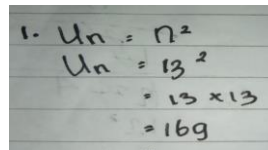 1. Un = n²
Un = 13²
= 13 × 13
= 169